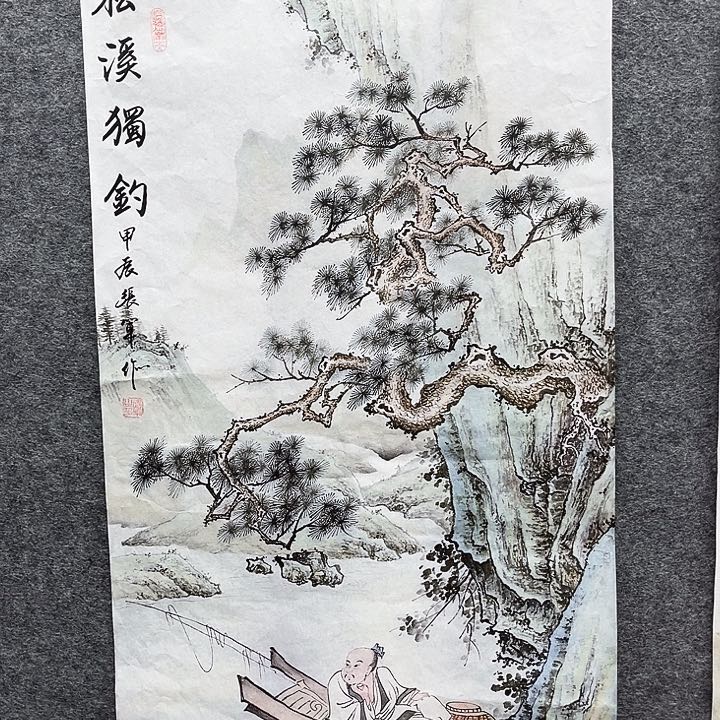 松溪獨釣
甲辰張軍作